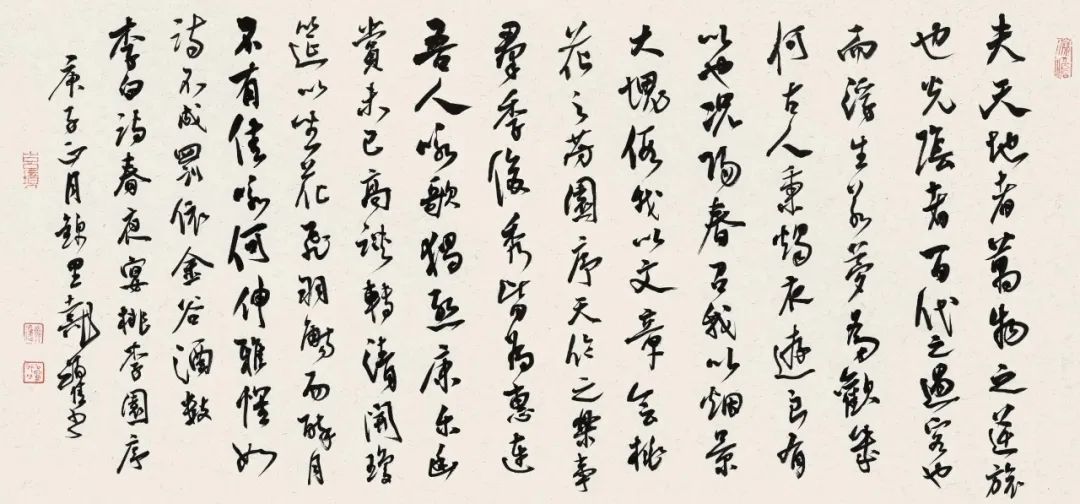 夫天地者萬物之逆旅
也光陰者百代之過客也
而浮生若夢為歡幾
何古人秉燭夜遊良有
以也況陽春召我以烟景
大塊假我以文章會桃
花之芳園序天倫之樂事
羣季俊秀皆為惠連
吾人咏歌獨慙康樂幽
賞未已高談轉清開瓊
筵以坐花飛羽觴而醉月
不有佳咏何伸雅懷如
詩不成罰依金谷酒數
李白詩春夜宴桃李園序
庚子正月錦里龍書